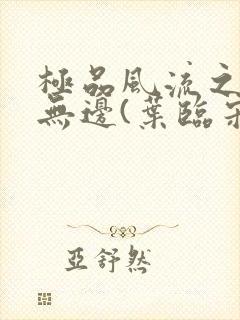 極品風流之
無邊(葉臨
亞舒然